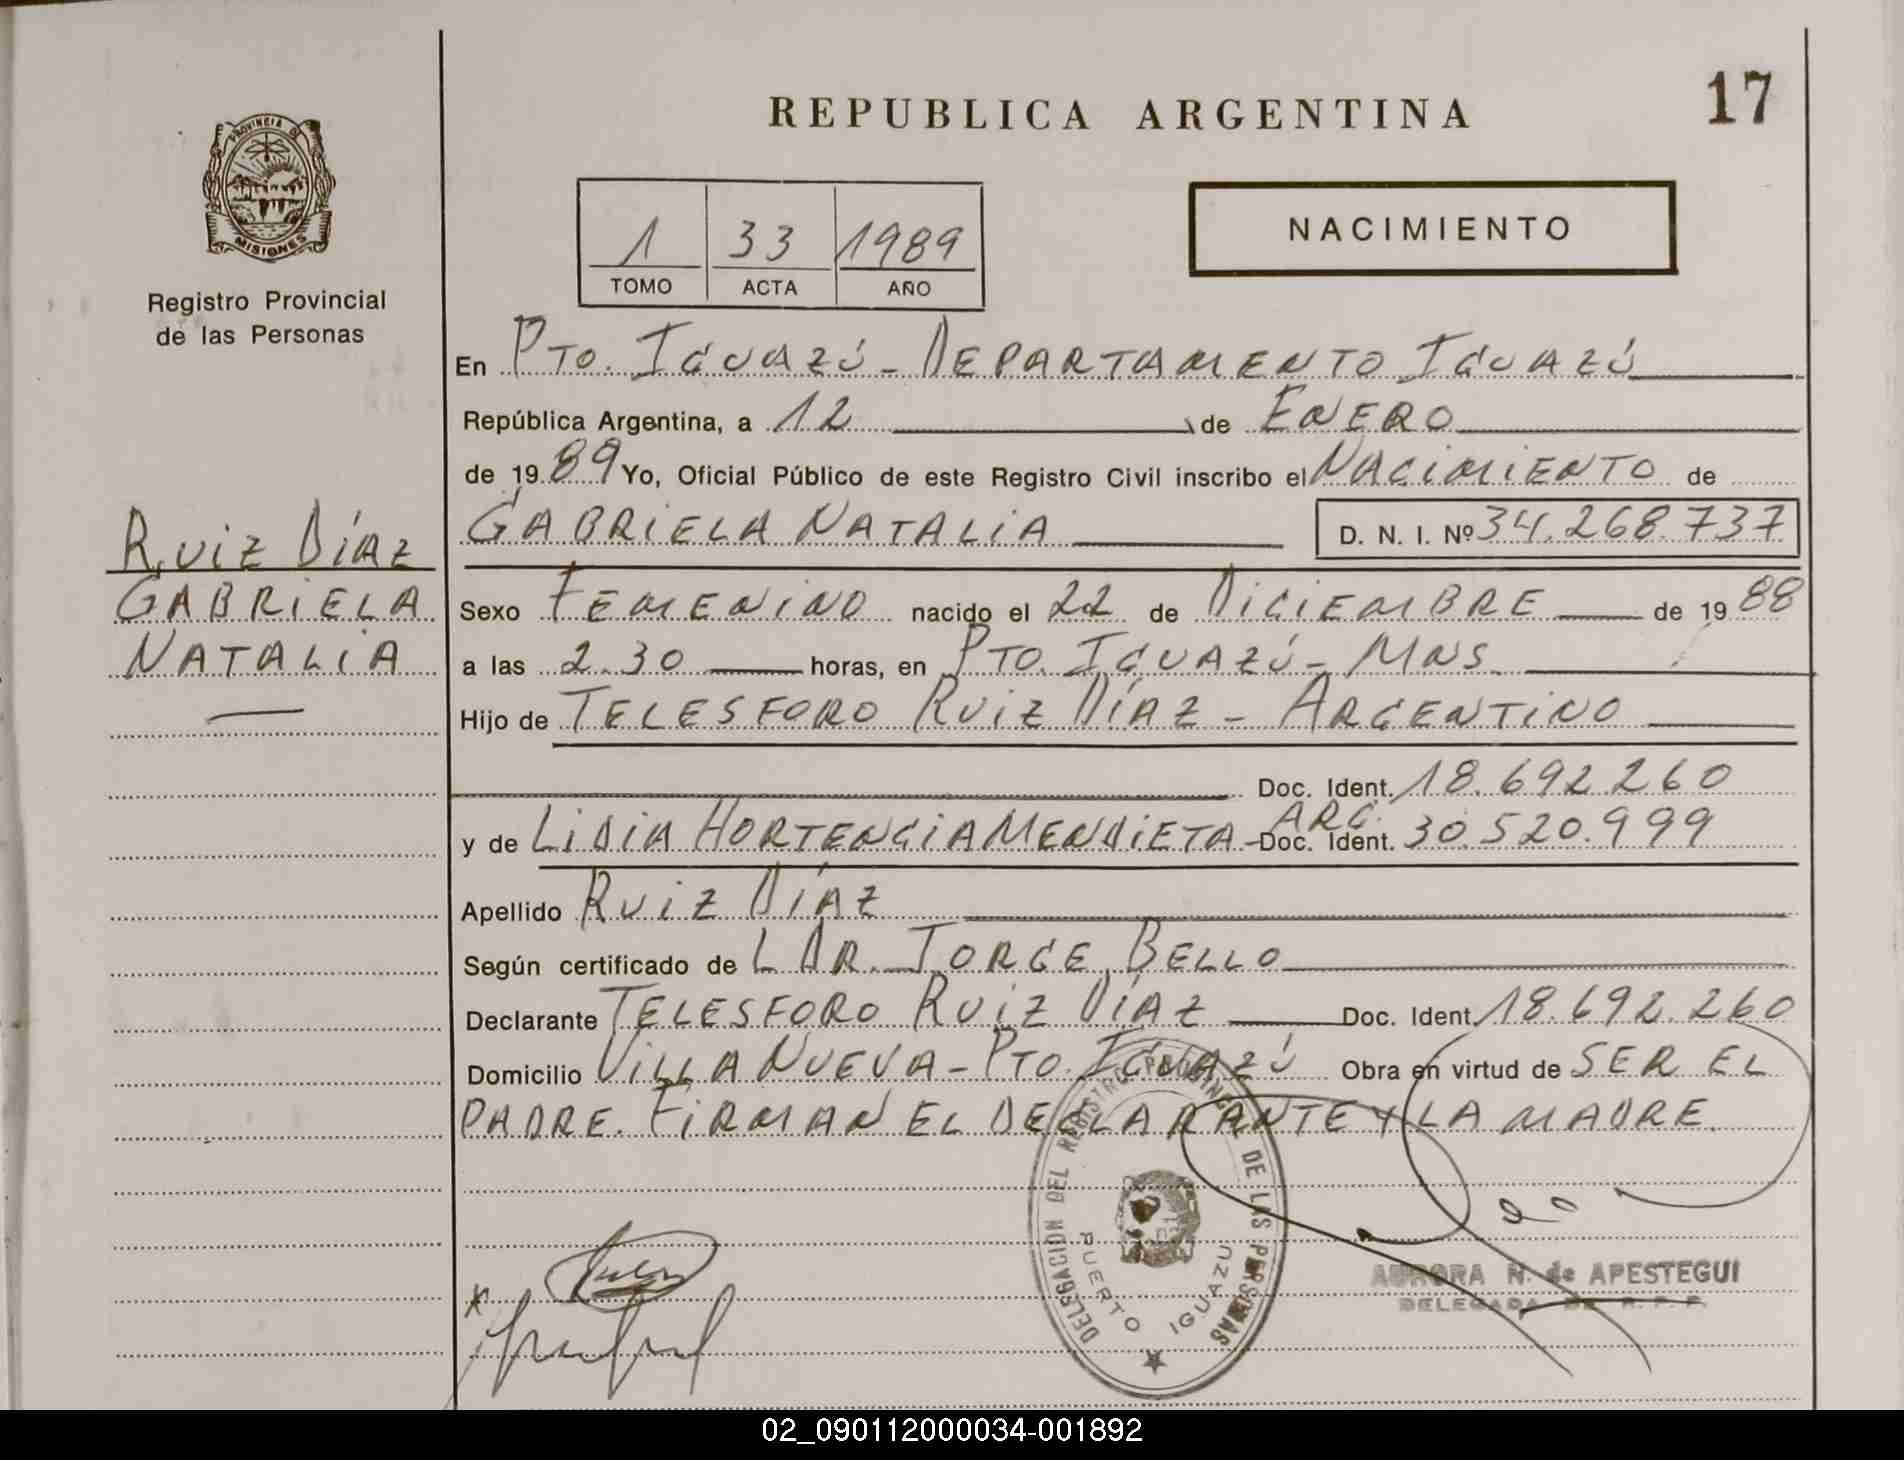 REPUBLICA ARGENTINA
17
PROVINCIA DE
MISIONES
Registro Provincial
de las Personas
1 33 1989
TOMO ACTA AÑO
NACIMIENTO
En PTO. IGUAZÚ - DEPARTAMENTO IGUAZÚ
República Argentina, a 12 de ENERO
de 1989 Yo, Oficial Público de este Registro Civil inscribo el NACIMIENTO de
GABRIELA NATALIA D. N. I. Nº 34.268.737
RUIZ DÍAZ
GABRIELA
NATALIA
Sexo FEMENINO nacido el 22 de DICIEMBRE de 1988
a las 2.30 horas, en PTO. IGUAZÚ - MNS
Hijo de TELESFORO RUIZ DÍAZ - ARGENTINO
Doc. Ident. 18.692.260
y de LIDIA HORTENCIA MENDIETA - ARG. Doc. Ident. 30.520.999
Apellido RUIZ DÍAZ
Según certificado de L DR. JORGE BELLO
Declarante TELESFORO RUIZ DÍAZ Doc. Ident. 18.692.260
Domicilio VILLA NUEVA - PTO. IGUAZÚ Obra en virtud de SER EL
PADRE. FIRMAN EL DECLARANTE Y LA MADRE.
DELEGACION DEL REGISTRO PROVINCIAL DE LAS PERSONAS
PUERTO IGUAZU
AURORA N. de APESTEGUI
DELEGADA DE R. P. P.
02_090112000034-001892